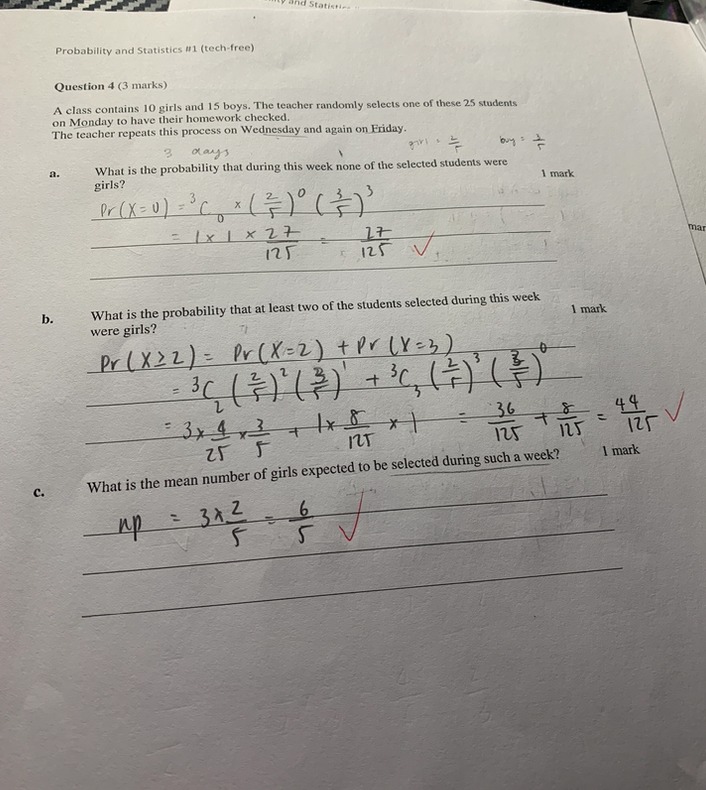 Probability and Statistics #1 (tech-free)
Question 4 (3 marks)
A class contains 10 girls and 15 boys. The teacher randomly selects one of these 25 students
on Monday to have their homework checked.
The teacher repeats this process on Wednesday and again on Friday.
3 days
girl = 2/5 boy = 3/5
a. What is the probability that during this week none of the selected students were
girls?
1 mark
Pr(X=0) = ³C₀ × (2/5)⁰ (3/5)³
= 1 × 1 × 27/125 = 27/125 ✓
b. What is the probability that at least two of the students selected during this week
were girls?
1 mark
Pr(X≥2) = Pr(X=2) + Pr(X=3)
= ³C₂ (2/5)² (3/5)¹ + ³C₃ (2/5)³ (3/5)⁰
= 3 × 4/25 × 3/5 + 1 × 8/125 × 1 = 36/125 + 8/125 = 44/125 ✓
c. What is the mean number of girls expected to be selected during such a week?
1 mark
np = 3 × 2/5 = 6/5 ✓